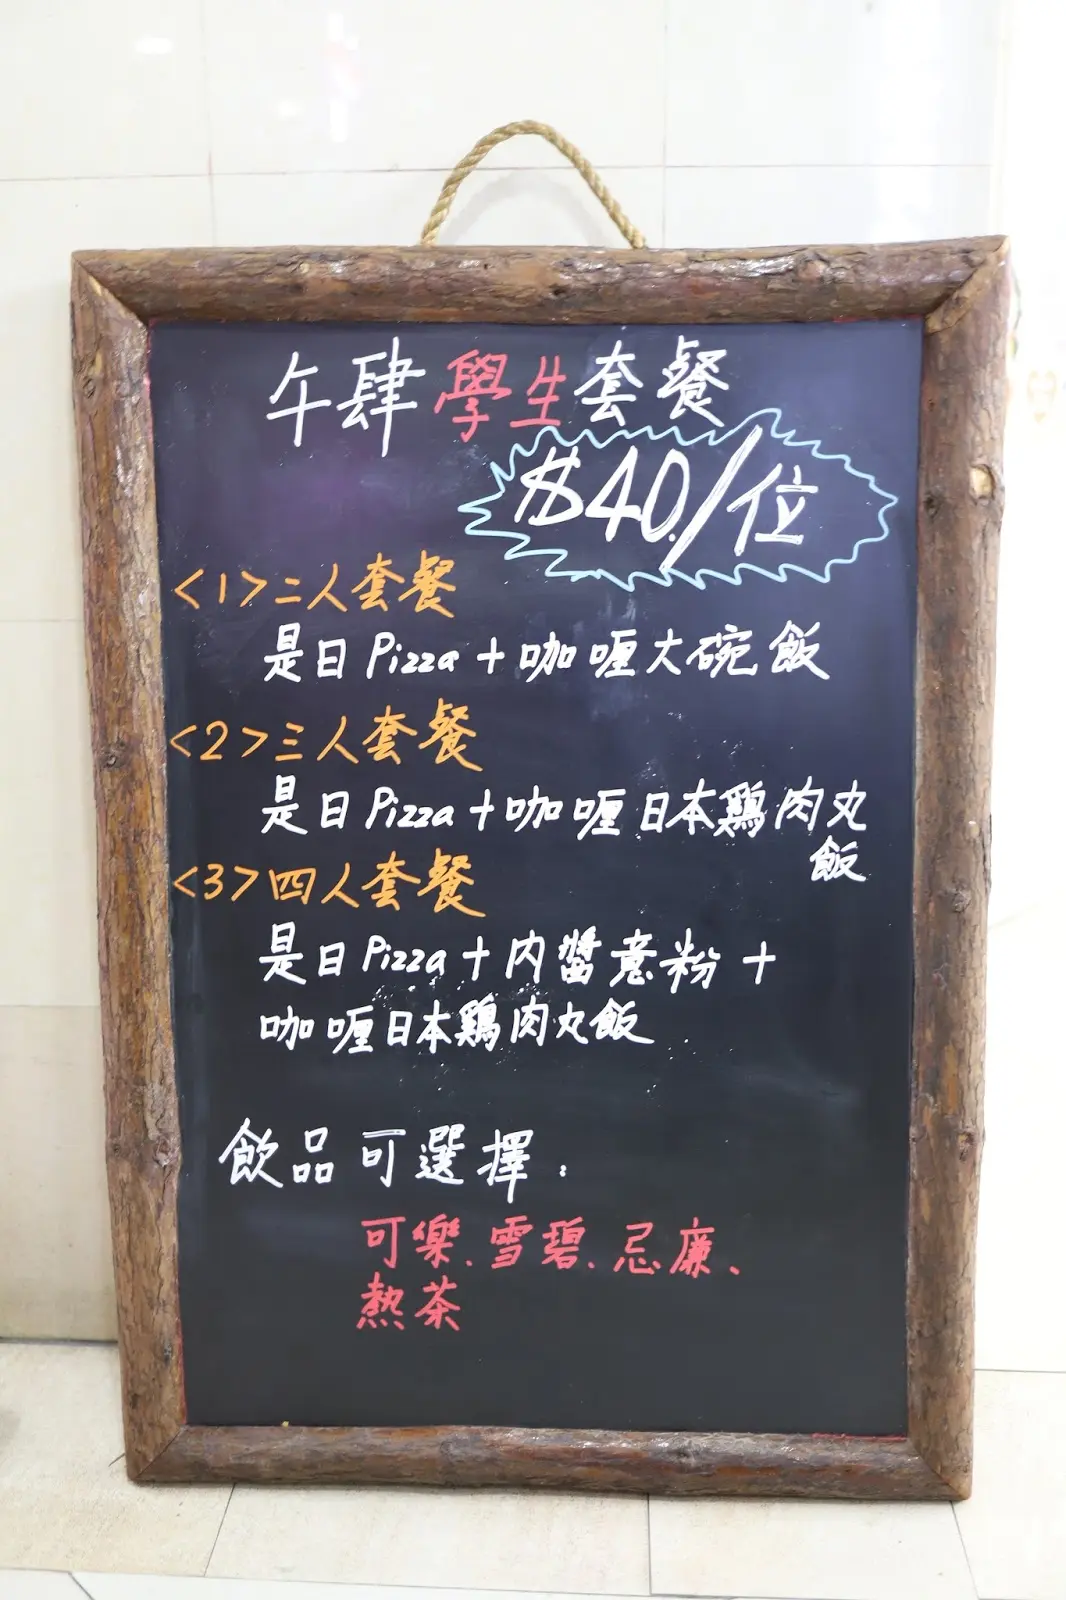 午肆學生套餐
$40/位
<1>二人套餐
是日Pizza+咖喱大碗飯
<2>三人套餐
是日Pizza+咖喱日本鶏肉丸
飯
<3>四人套餐
是日Pizza+肉醬意粉+
咖喱日本鶏肉丸飯
飲品可選擇:
可樂、雪碧、忌廉、
熱茶